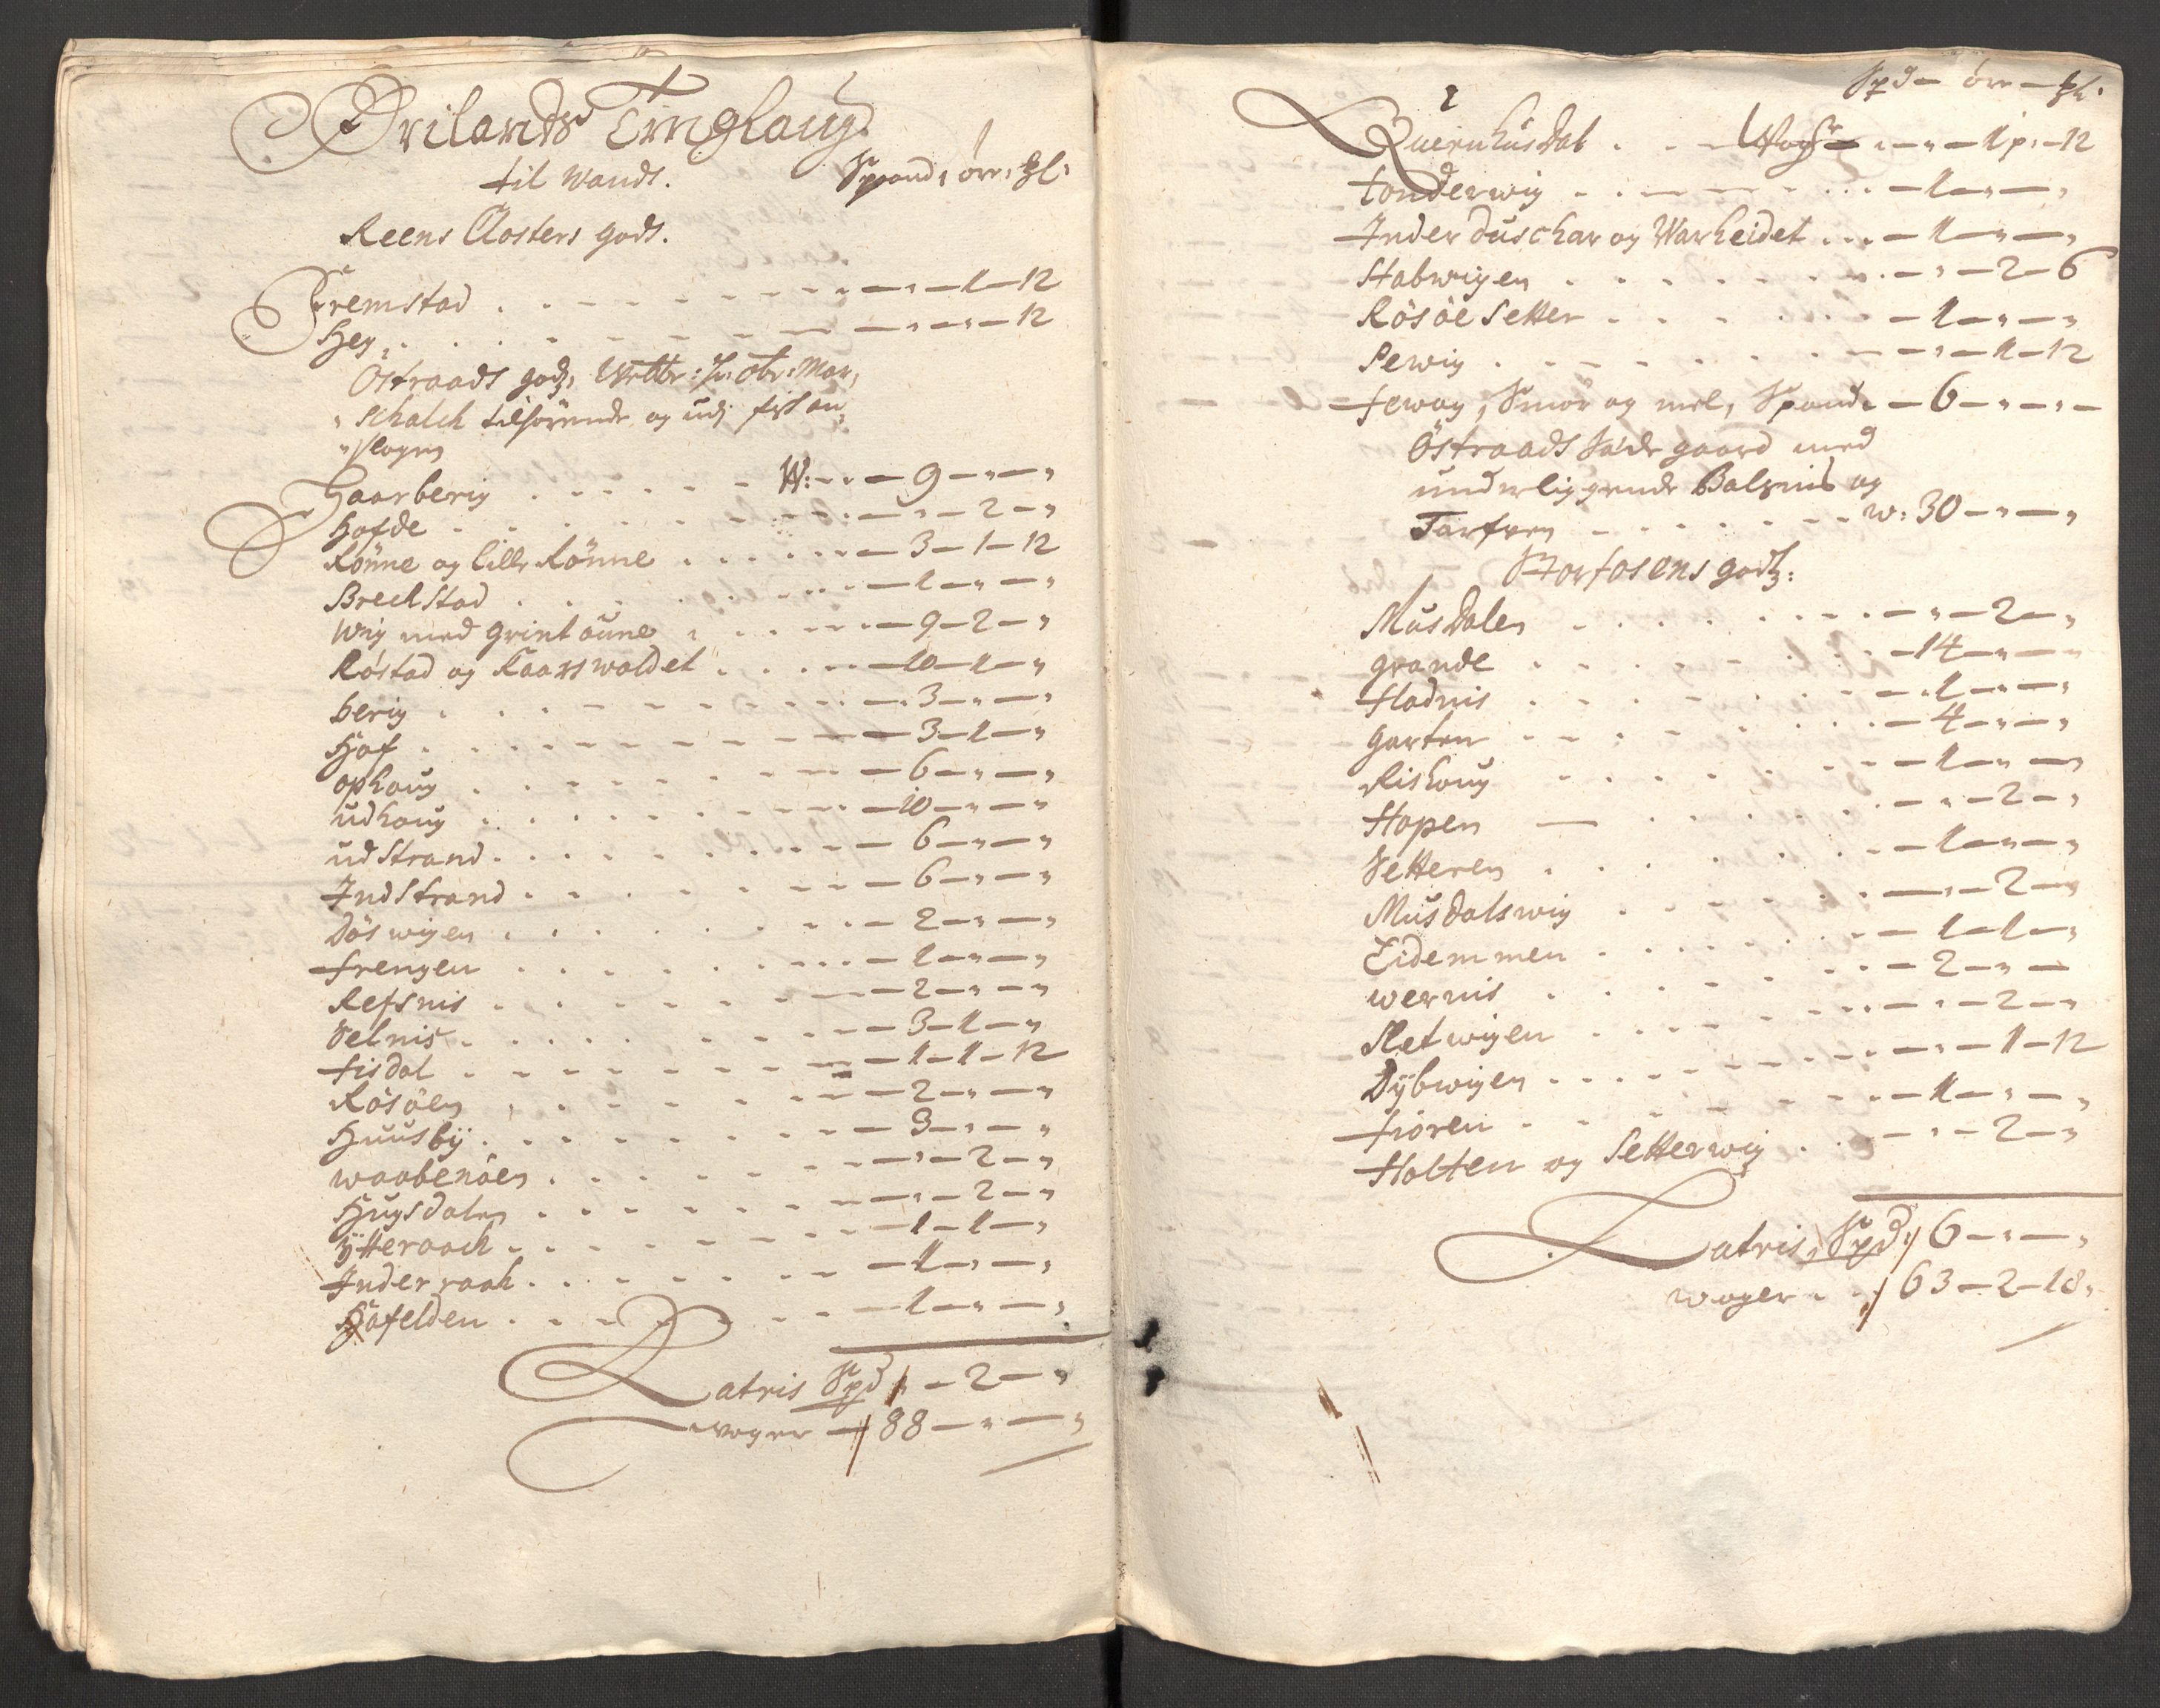 Ørilands Tinglaug
til Wands. Spand, ørr, #l.
Reens Closters gods.
Fremstad . . . . . . . — „ — 1 — 12
Hey . . . . . . . — „ — „ — 12
Östraads godz, Velbr: Hr: obr: Mar,
„ schalch tilhörende og udj
„ Slagen
Haarberig . . . . . W: . . — 9 — „ — „
Hofde . . . . . . . — „ — 2 — „
Rönne og lille Rönne . . . . . — 3 — 1 — 12
Brechstad . . . . . . . — 1 — „ — „
Wig med grintoune . . . . . — 9 — 2 — „
Röstad og Kaarswoldet . . . . — 10 — 1 — „
berig . . . . . . . — 3 — „ — „
Hof . . . . . . . — 3 — 1 — „
ophoug . . . . . . . — 6 — „ — „
udhoug . . . . . . . — 10 — „ — „
udstrand . . . . . . . — 6 — „ — „
Indstrand . . . . . . . — 6 — „ — „
Döswigen . . . . . . . — 2 — „ — „
frengen . . . . . . . — 1 — „ — „
Refsnis . . . . . . . — 2 — „ — „
Velnis . . . . . . . — 3 — 1 — „
fisdal . . . . . . . — 1 — 1 — 12
Rösöen . . . . . . . — 2 — „ — „
Huusbÿ . . . . . . . — 3 — „ — „
waabenöen . . . . . . — „ — 2 — „
Hugsdalen . . . . . . — „ — 2 — „
Ÿtteraach . . . . . . . — 1 — 1 — „
Inder raak . . . . . . — 1 — „ — „
Höfelden . . . . . . . — 1 — „ — „
Latris Spd „ — 2 — „
woger — 88 — „ — „
2 Spd — örr — #l.
Quernhusdal . . — Wogr — „ — 1 p: — 12
tonderwig . . . . . . . — 1 — „ — „
Inder duschar og Warheidet . . . — 1 — „ — „
Stabwigen . . . . . . . — „ — 2 — 6
Rösöe Setter . . . . . . — 1 — „ — „
Sewig . . . . . . . — „ — 1 — 12
fewag, Smör og mel, Spand . — 6 — „ — „ —
Östraads Sæde gaard med
underliggende Balsnis og
Tarfven . . . . . . . w: 30 — „ — „
Storfosens godz:
Musdalen . . . . . . . — „ — 2 — „
grande . . . . . . . — 14 — „ —
fladnis . . . . . . . — 1 — „ — „
garten . . . . . . . — 4 — „ — „
Rishoug . . . . . . . — 1 — „ — „
Hopen — . . . . . . — „ — 2 — „
Setteren . . . . . . . — 1 — „ — „
Musdalswig . . . . . . — „ — 2 — „
Eidemmen . . . . . . . — 1 — 1 — „
wernis . . . . . . . — 2 — „ —
Sletwigen . . . . . . . — „ — 2 — „
Dÿbwigen . . . . . . . — „ — 1 — 12
fioren . . . . . . . — 1 — „ — „
Holten og Setterwig . . — „ — 2 — „
Latris, Spd: 6 — „ — „
woger . . 63 — 2 — 18 „